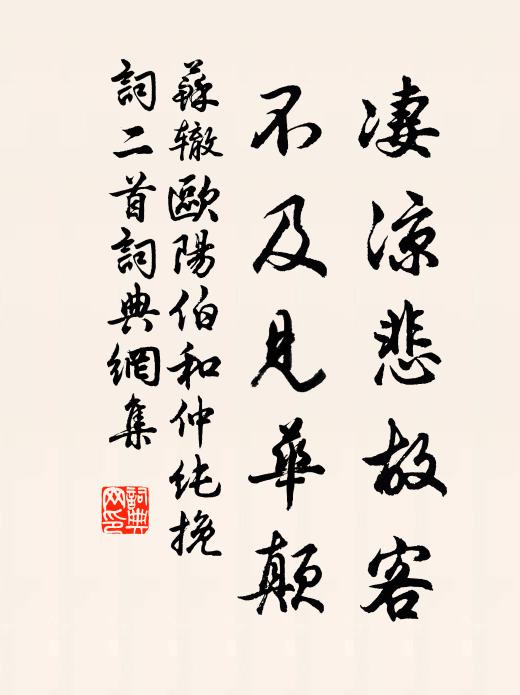 凄凉悲故客
不及見華顛
蘇辙歐陽伯和仲纯挽
詞二首詞典網集
詞典
网印